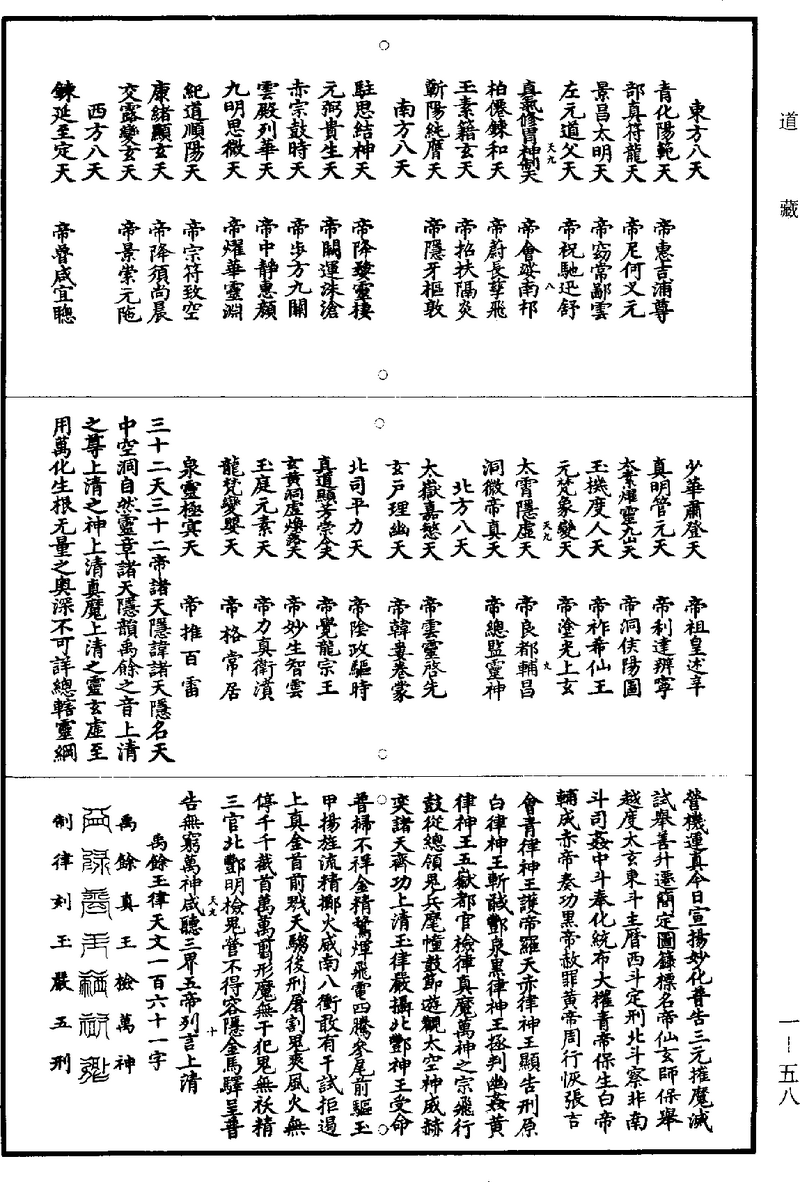 道藏
東方八天
青化陽範天 帝惠吉浦尊
部真符龍天 帝尼何叉元
景昌太明天 帝窈常鄙雲
左元道父天 帝祝馳迅舒
天九 八
真氣修胃神制天 帝會婆南邘
柏僊鍊和天 帝蔚長孽飛
王素籍玄天 帝招扶隔炎
靳陽純曆天 帝隱牙樞敦
南方八天
駐思結神天 帝降發靈棲
元弼貴生天 帝關運洙滄
赤宗鼓時天 帝步方九關
雲殿列華天 帝中靜惠顏
九明思微天 帝耀華靈淵
紀道順陽天 帝宗符致空
康緒顯玄天 帝降須尚晨
交露變玄天 帝景崇元陁
西方八天
鍊延至定天 帝曾咸宜聰
少華肅登天 帝祖皇述辛
真明管元天 帝利達辨寧
太素耀靈九山天 帝洞俠陽圖
玉機度人天 帝祚希仙王
元梵象變天 帝塗光上玄
天九 九
太霄隱虛天 帝良都輔昌
洞微帝真天 帝總監靈神
北方八天
太嶽嘉慜天 帝雲靈啓先
玄戸理幽天 帝韓婁卷蒙
北司平力天 帝陰政驅時
真道顯芳崇令天 帝覺龍宗王
玄黃洞虛煥落天 帝妙生智雲
玉庭元素天 帝力真衛濱
龍梵變嬰天 帝格常居
泉靈極寘天 帝推百雷
三十二天三十二帝諸天隱諱諸天隱名天
中空洞自然靈章諸天隱韻禹餘之音上清
之尊上清之神上清真魔上清之靈玄虛至
用萬化生根无量之奥深不可詳總轄靈綱
營機運真今日宣揚妙化普告三元摧魔滅
試舉善升遷簡定圖籙標名帝仙玄師保舉
越度太玄東斗主曆西斗定刑北斗察非南
斗司姦中斗奉化統布大權青帝保生白帝
輔成赤帝奏功黑帝赦罪黃帝周行恢張吉
會青律神王護帝羅天赤律神王顯告刑原
白律神王斬馘酆泉黑律神王拯判幽姦黃
律神王五嶽都官檢律真魔萬神之宗飛行
鼓從總領鬼兵麾幢鼓節遊觀太空神威赫
奕諸天齊功上清玉律嚴攝北酆神王受命
普掃不祥金精驚燀飛電四騰參尾前驅玉
甲揚旌流精擲火威南八衝敢有干試拒遏
上真金首前戮天騶後刑屠割鬼爽風火無
停千千截首萬萬翦形魔無干犯鬼無祅精
三官北酆明檢鬼營不得容隱金馬驛呈普
天九 十
告無窮萬神咸聽三界五帝列言上清
禹餘玉律天文一百六十一字
禹餘真王檢萬神
制律刻玉嚴五刑
一—五八